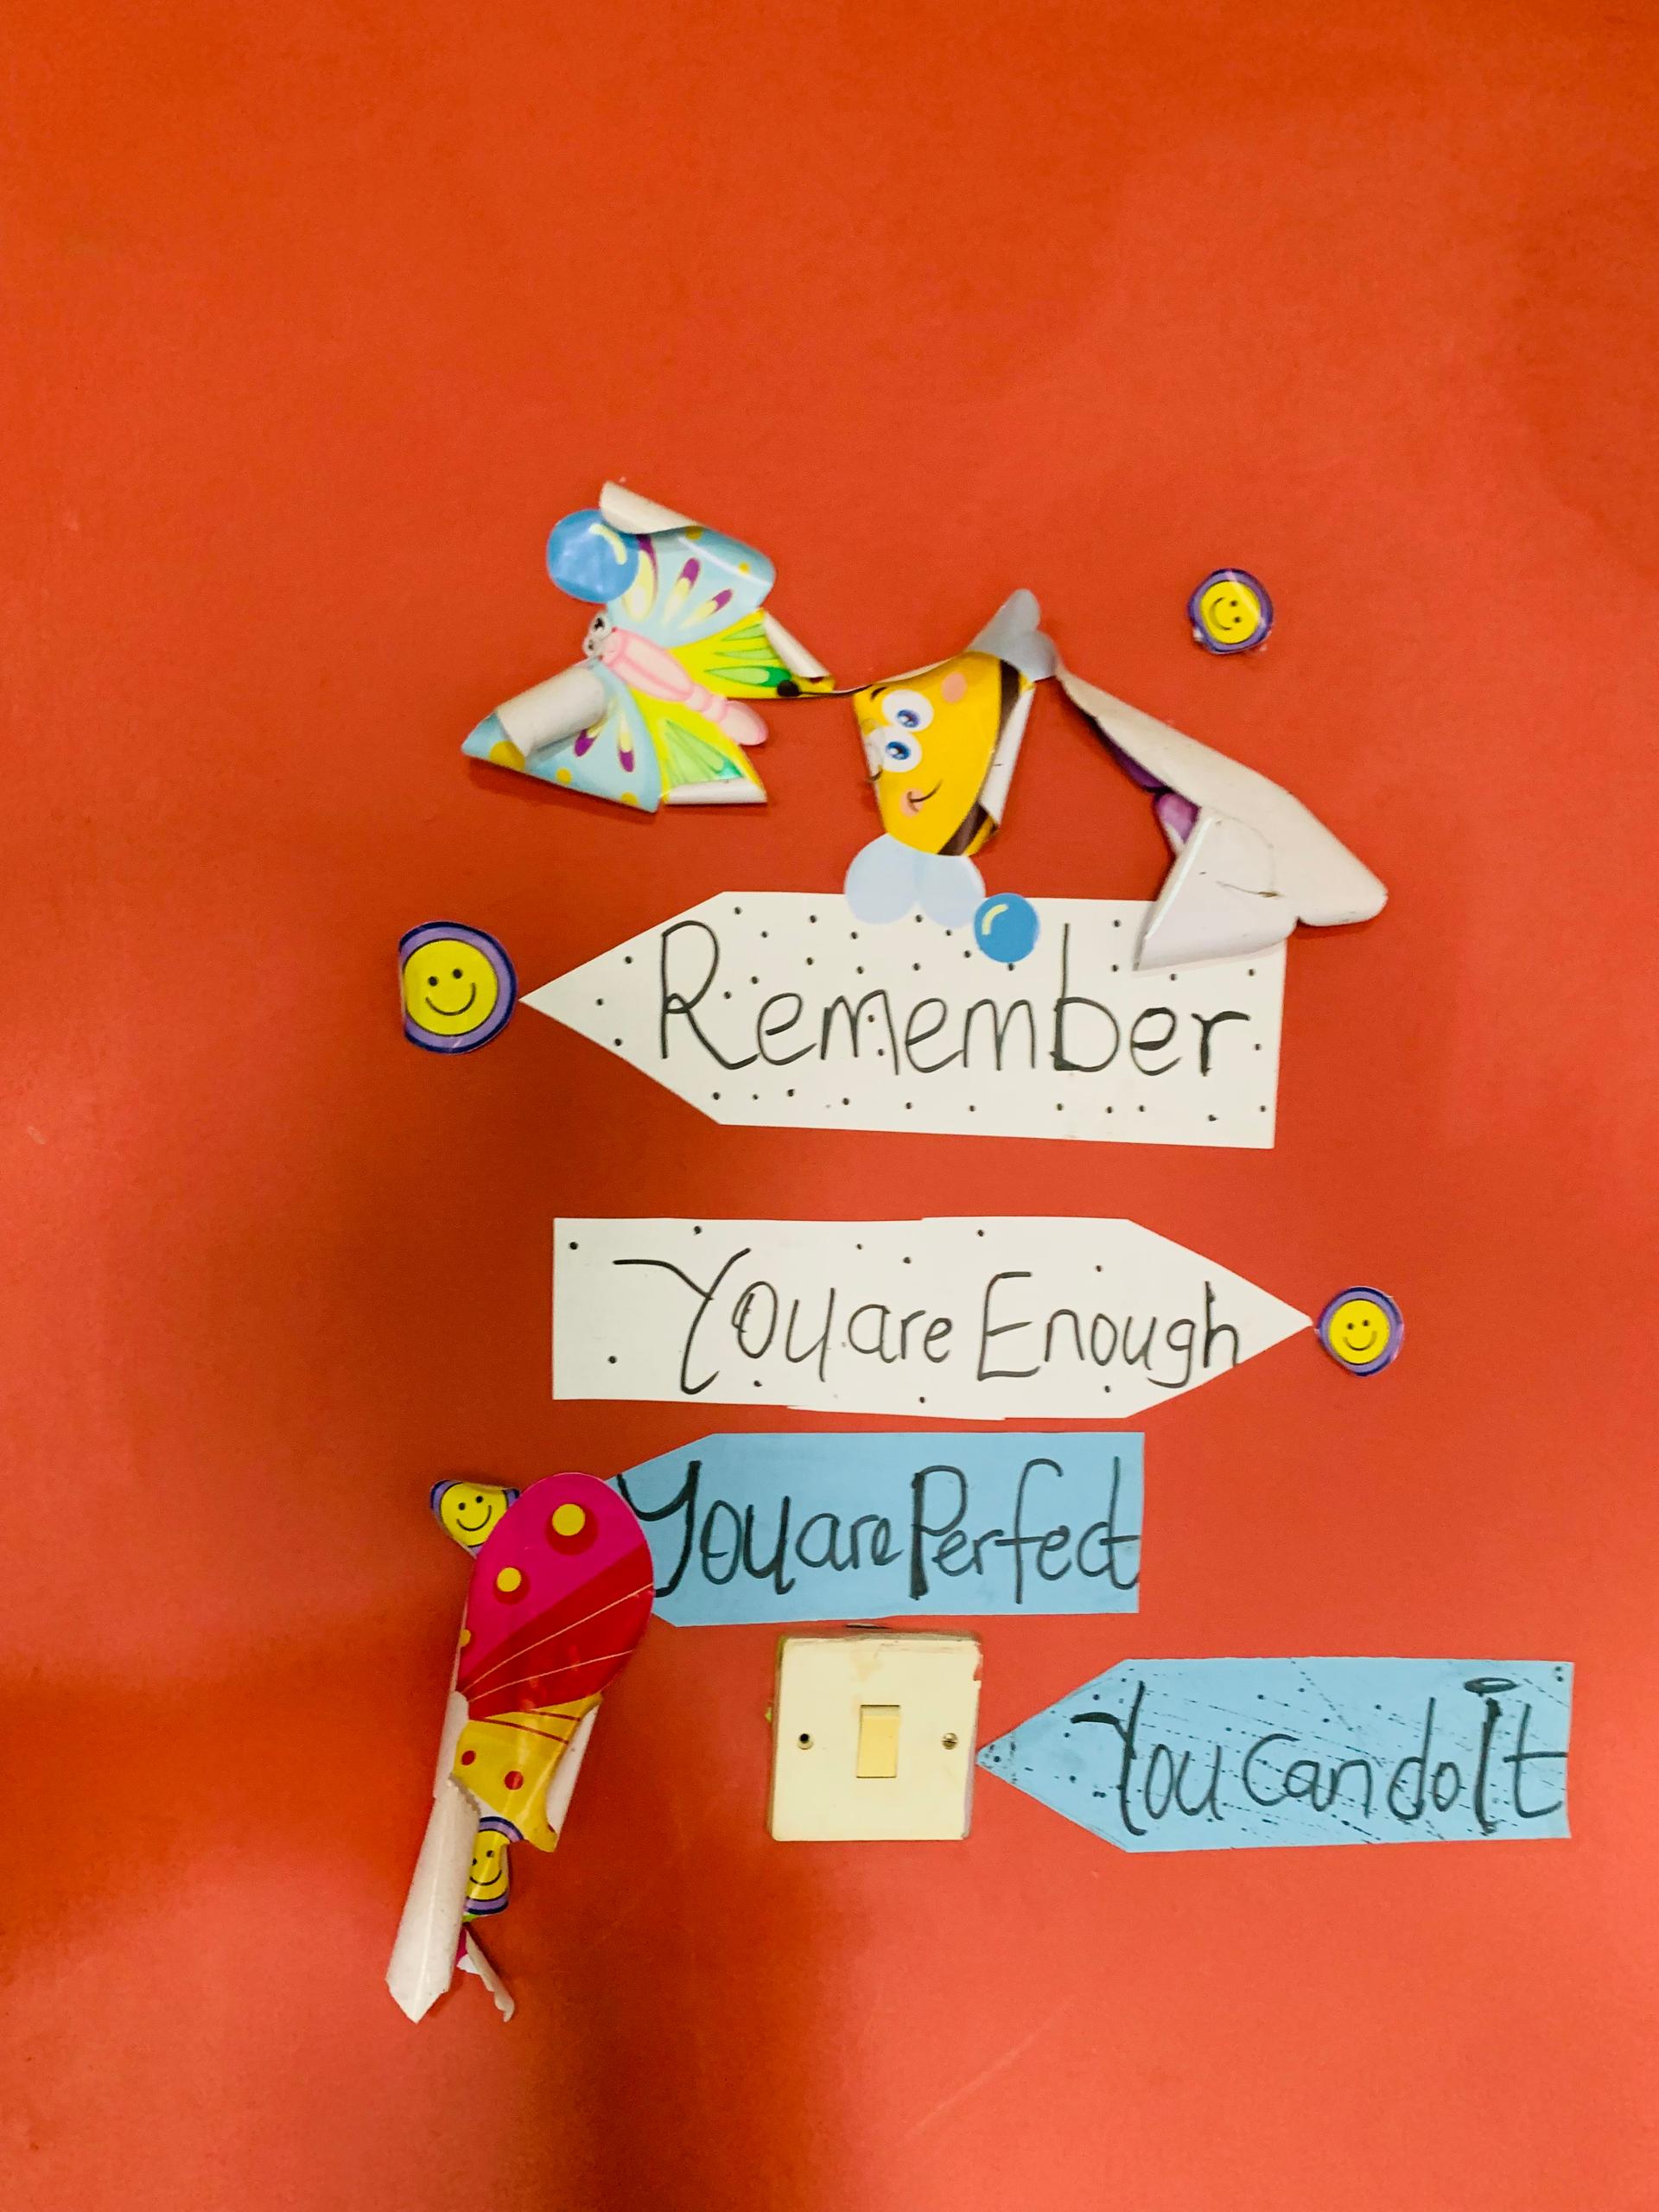 Remember
You are Enough
You are Perfect
You can do It